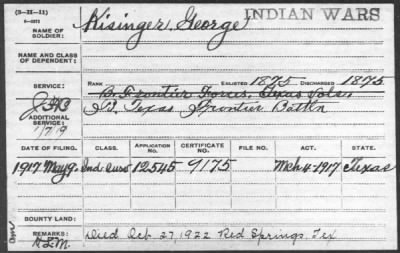 (3-21-11)
6-3271
NAME OF SOLDIER: Kisinger, George INDIAN WARS
NAME AND CLASS OF DEPENDENT:
SERVICE: RANK ENLISTED 1875 DISCHARGED 1875
B. Frontier Forces, Texas Vols.
B. Texas Frontier Battln
ADDITIONAL SERVICE:
DATE OF FILING. CLASS. APPLICATION NO. CERTIFICATE NO. FILE NO. ACT. STATE.
1917 May 9 Ind Surv 12545 9175 Mch 4-1917 Texas
BOUNTY LAND:
REMARKS: Died Oct 27 1922 Red Springs, Tex